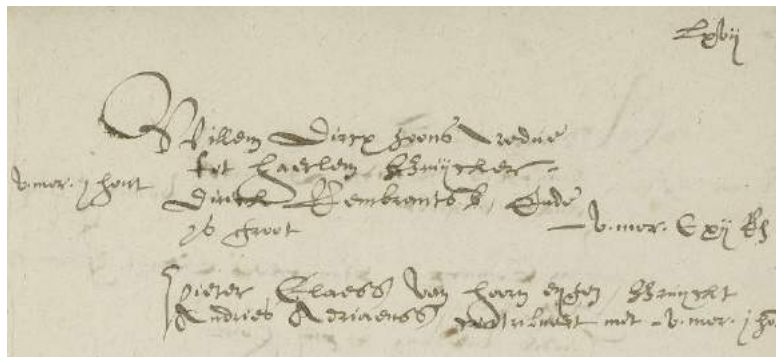 Lxvij
Willem Dircx zoons wedue
tot haerlem Bruycker
v. mor. j hont
Dirck Rembrants z, Ende
is groot
v. mor. C xij R
Pieter Claess van hoorn eygen, Bruyckt
Andries Adriaenss, contribueert met v. mor. j ho